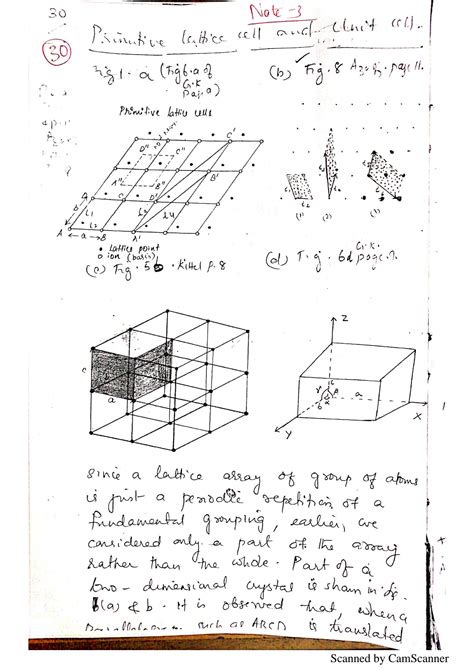 30
Note - 3
Primitive lattice cell and Unit cell.
30
Fig 1. a (Fig 6. a of
G.K
pag. a)
(b) Fig. 8 page 11.
Primitive lattice cells
D" C"
A" B"
C'
D' B'
L1 L2 L4
b
A a B A'
• lattice point
o ion (basis)
(1) (2) (3)
(c) Fig. 5 Kittel p. 8
(d) Fig. 6d page 7.
G.K.
c
a
Z
a
X
Y
since a lattice array of group of atoms
is just a periodic repetition of a
fundamental grouping, earlier, we
considered only a part of the array
rather than the whole. Part of a
two-dimensional crystal is shown in fig.
(a) & b. It is observed that, when a
Parallelogram such as ABCD is translated
Scanned by CamScanner